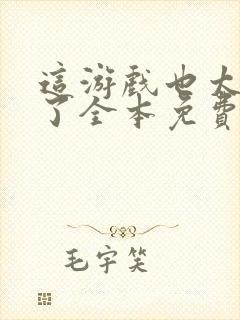 這游戲也太
了全本免費
毛宇笑